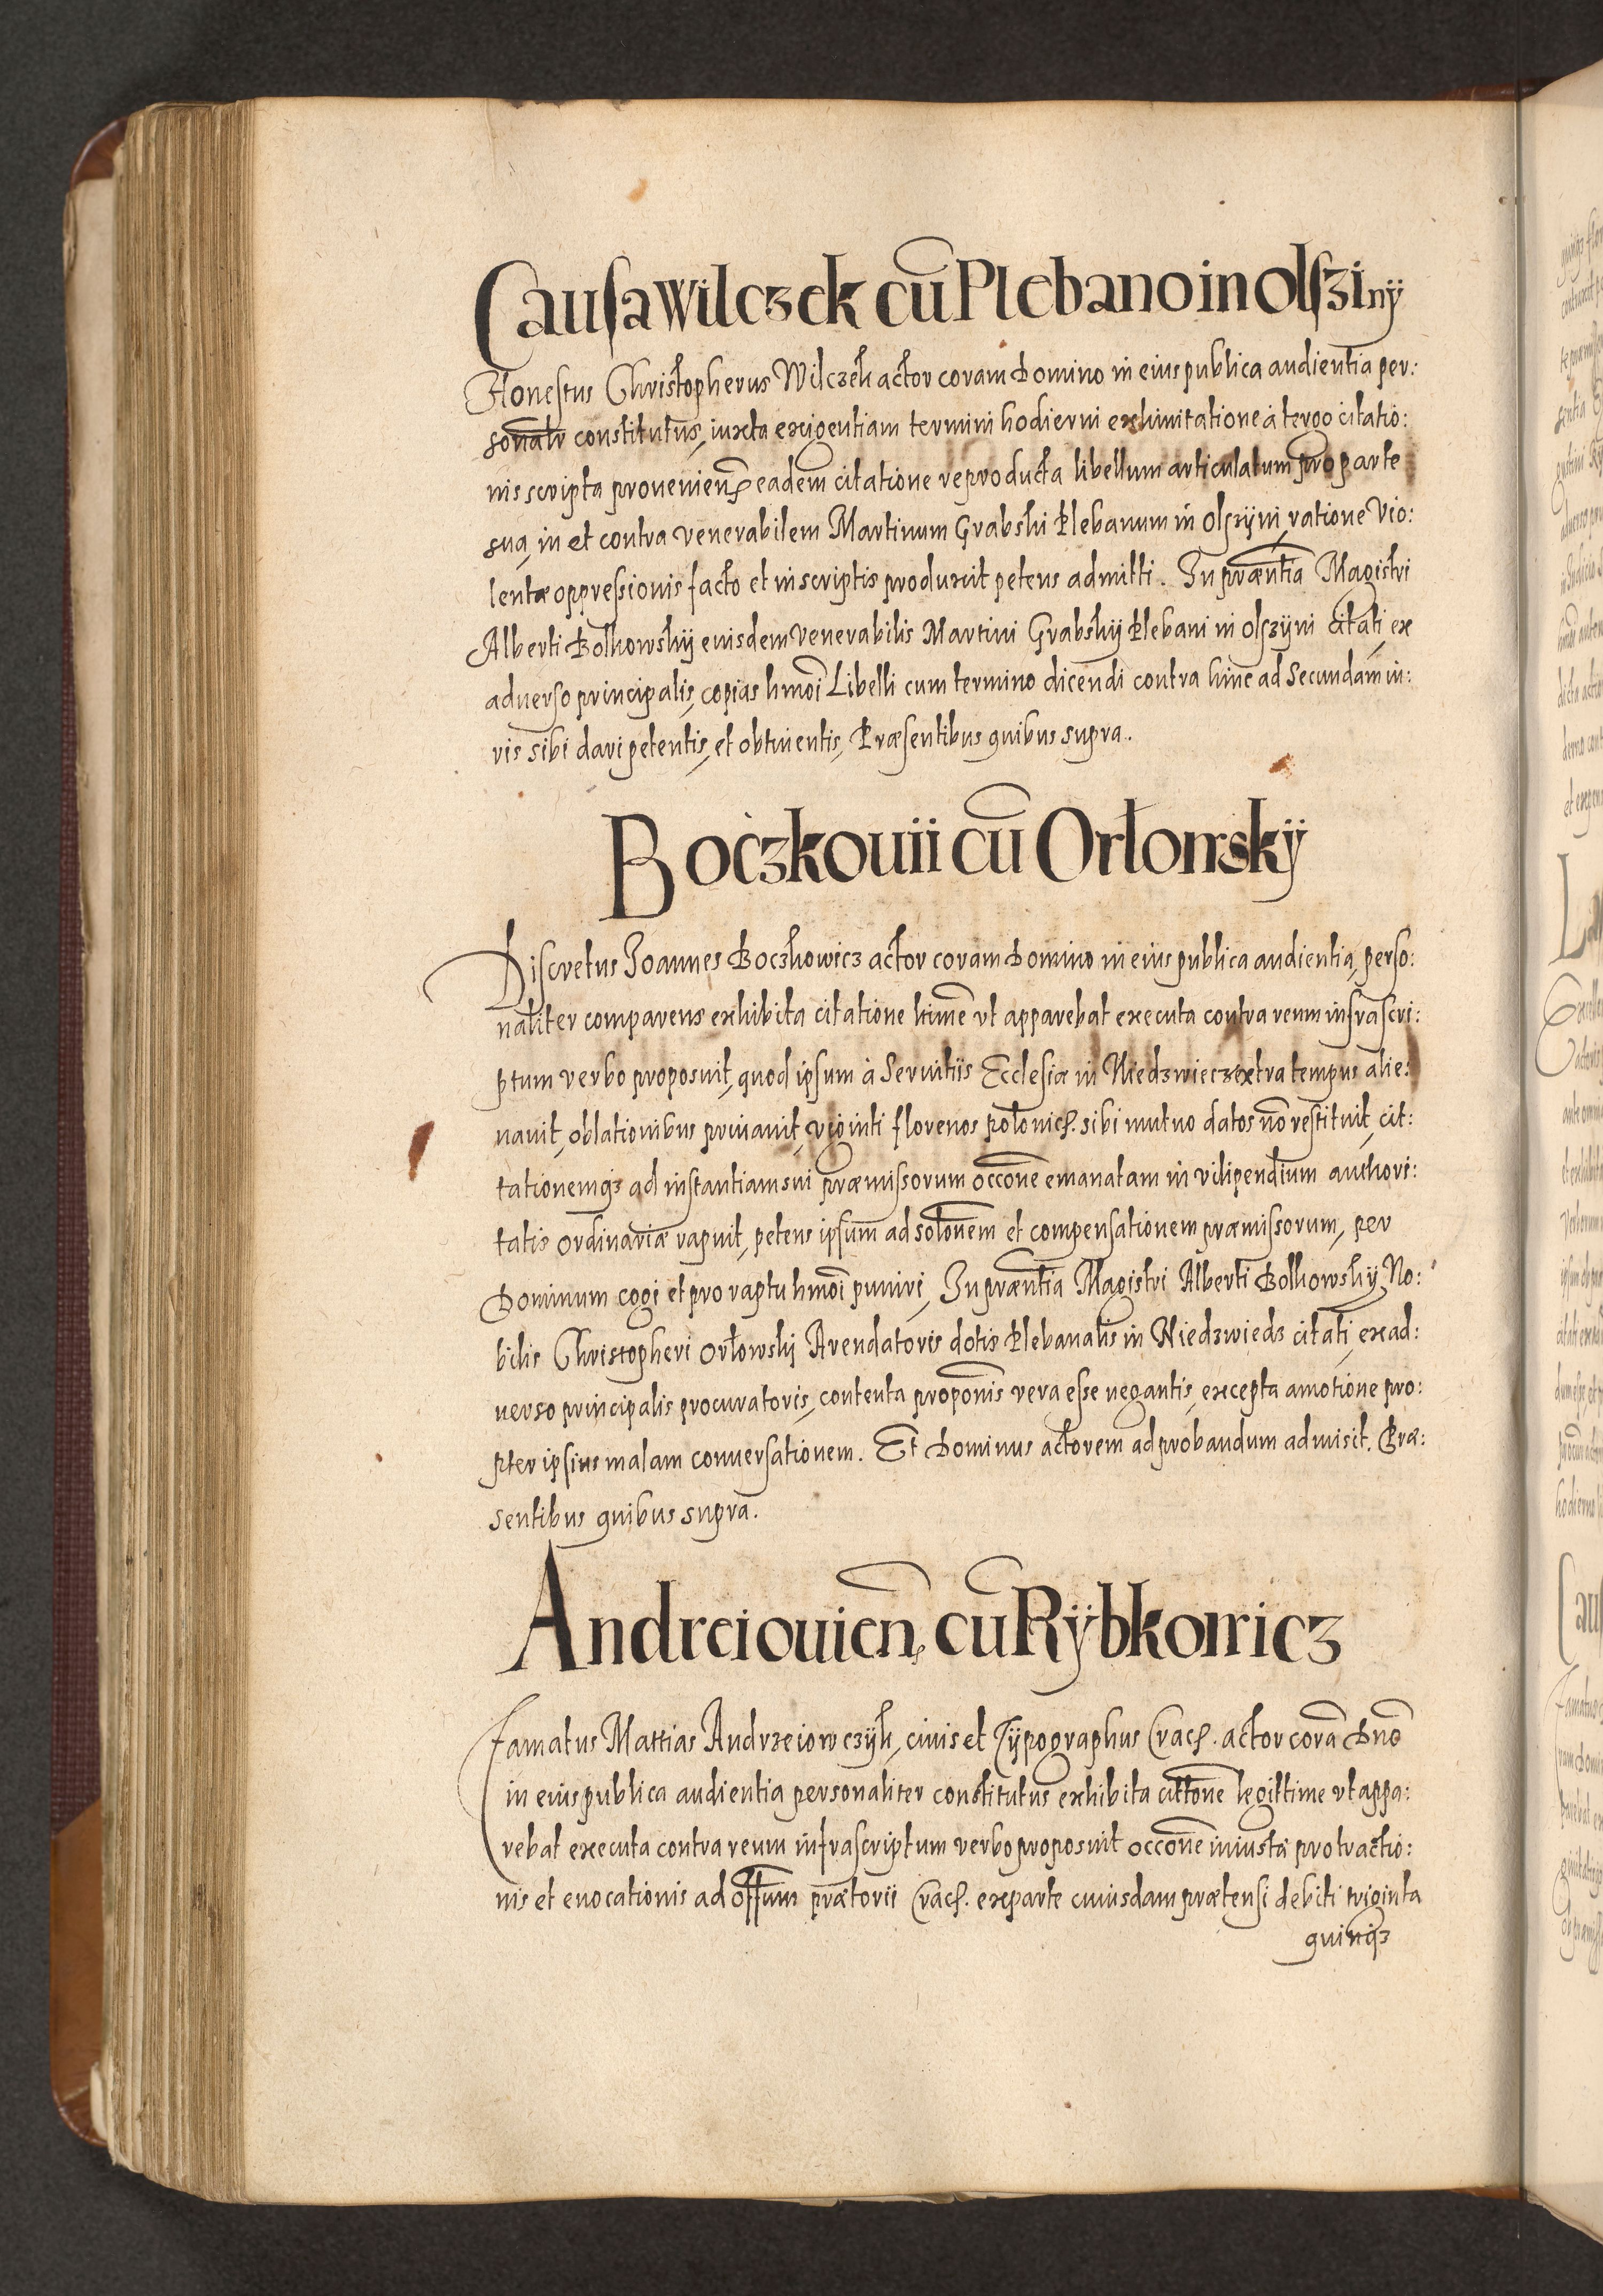 Causa Wilczek cū Plebano in Olsziny
Honestus Christopherus Wilczek actor coram Domino in eius publica audientia per:
sonalr̄ constitutus, iuxta exigentiam termini hodierni ex limitatione à tergo citatio:
nis scripta proueniens eadem citatione reproducta libellum articulatum pro parte
sua, in et contra venerabilem Martinum Grabski Plebanum in Olszÿni, ratione vio:
lentæ oppressionis facto et in scriptis produxit petens admitti. In præntia Magistri
Alberti Bolkowskÿ eiusdem venerabilis Martini Grabskÿ Plebani in Olszÿni citati, ex
aduerso principalis, copias hmōi Libelli cum termino dicendi contra hinc ad secundam iu:
ris sibi dari petentis, et obtinentis, Præsentibus quibus supra.
Boczkouii cū Orłowskÿ
Discretus Joannes Boczkowicz actor coram Domino in eius publica audientia, perso:
naliter comparens exhibita citatione ltimē vt apparebat executa contra reum infrascri:
ptum verbo proposuit, quod ipsum à Seruitiis Ecclesiæ in Niedzwiecz extra tempus alie:
nauit, oblationibus priuauit, viginti florenos polonich. sibi mutuo datos nō restituit, cit:
tationemqz ad instantiam sui præmissorum occōne emanatam in vilipendium authori:
tatis ordinariæ rapuit, petens ipsum ad solōnem et compensationem præmissorum, per
Dominum cogi et pro raptu hmōi puniri, In præntia Magistri Alberti Bolkowskÿ No:
bilis Christopheri Orłowskÿ Arendatoris dotis Plebanalis in Niedzwiedz citati, ex ad:
uerso principalis procuratoris, contenta propōnis vera esse negantis, excepta amotione pro:
pter ipsius malam conuersationem. Et Dominus actorem ad probandum admisit. Præ:
sentibus quibus supra.
Andreiouien, cū Rÿbkowicz
Famatus Mattias Andrzeiowczÿk, ciuis et Tÿpographus Crach. actor corā Dnō
in eius publica audientia personaliter constitutus exhibita cittōne legittime vt appa:
rebat executa contra reum infrascriptum verbo proposuit occōne iniustæ protractio:
nis et euocationis ad offum prætorii Crach. ex parte cuiusdam prætensi debiti triginta
quinqz